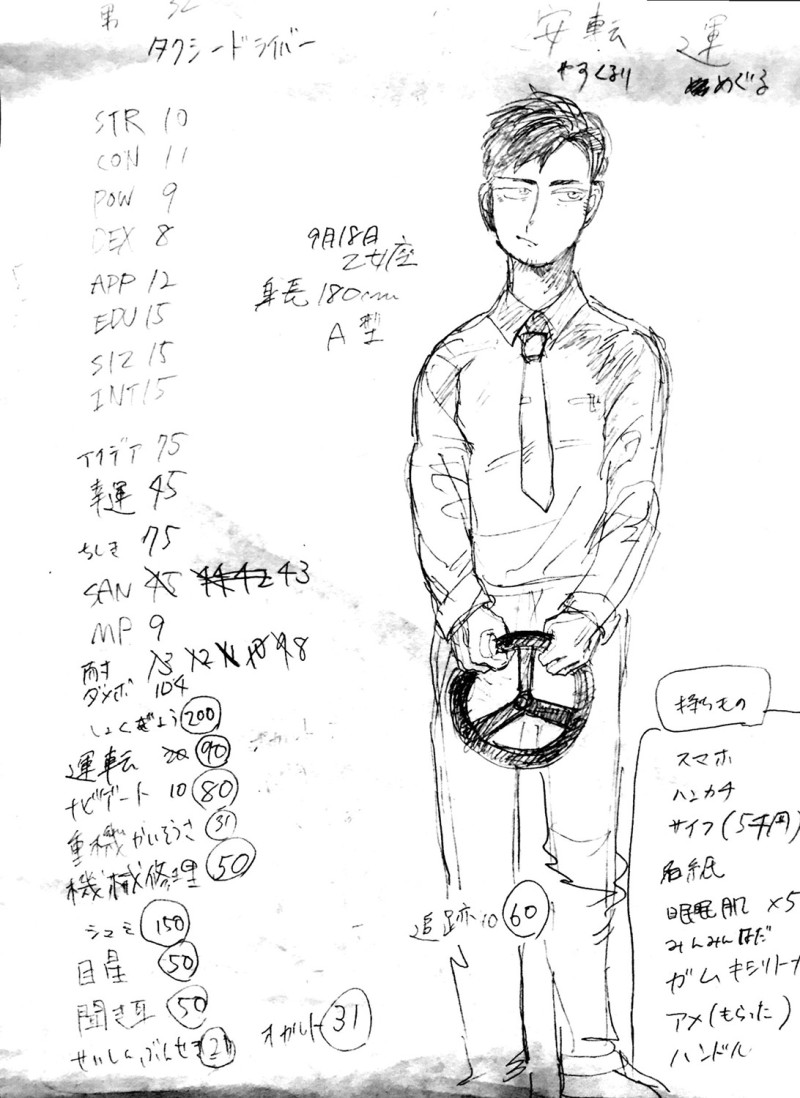 男 32
タクシードライバー
安転 運
やすくるり めぐる
STR 10
CON 11
POW 9
DEX 8
APP 12
EDU 15
SIZ 15
INT 15
9月18日
乙女座
身長 180cm
A型
アイデア 75
幸運 45
ちしき 75
SAN 45 44 42 43
MP 9
耐 13 12 11 10 9 8
ダメボ 1D4
しょくぎょう 200
運転 20 90
ナビゲート 10 80
重機かいそうさ 31
機械修理 50
追跡 10 60
シュミ 150
目星 50
聞き耳 50
せいしんぶんせき 21
オカルト 31
持ちもの
スマホ
ハンカチ
サイフ(5千円)
名紙
眠眠肌 ×5
みんみんはだ
ガム キシリトール
アメ(もらった)
ハンドル